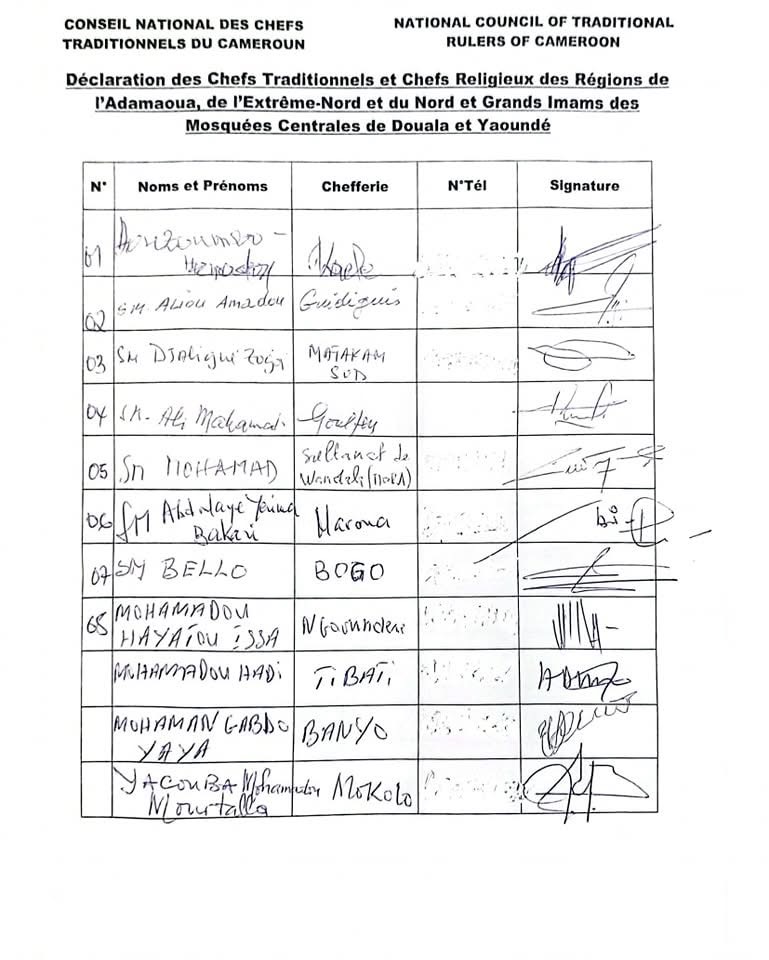 CONSEIL NATIONAL DES CHEFS
TRADITIONNELS DU CAMEROUN
NATIONAL COUNCIL OF TRADITIONAL
RULERS OF CAMEROON
Déclaration des Chefs Traditionnels et Chefs Religieux des Régions de
l'Adamaoua, de l'Extrême-Nord et du Nord et Grands Imams des
Mosquées Centrales de Douala et Yaoundé
N° Noms et Prénoms Chefferie N°Tél Signature
01
02 SM Aliou Amadou Guidiguis
03 SM MATAKAM
SUD
04 SM. Ali Mahamat Goulfey
05 SM MOHAMAD Sultanat de
Wandala (MORA)
06 SM Abdoulaye Yerima
Bakari Maroua
07 SM BELLO BOGO
08 MOHAMADOU
HAYATOU ISSA Ngaoundere
MOHAMADOU HADI TIBATI
MOHAMAN GABDO
YAYA BANYO
YACOUBA Mohamadou
Mourtalla MOKOLO